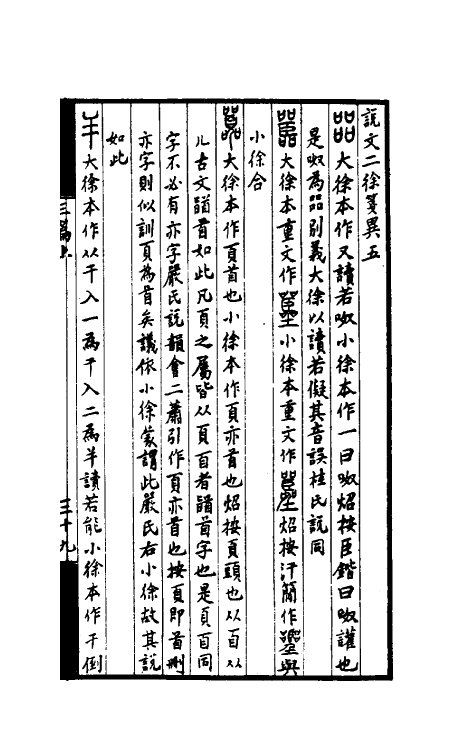 說文二徐箋異五
㗊大徐本作又讀若呶小徐本作一曰呶炤按臣鍇曰呶讙也
是呶為㗊別義大徐以讀若儗其音誤桂氏說同
嚚大徐本重文作 小徐本重文作 炤按汗簡作 與
小徐合
囂 大徐本作頁首也小徐本作頁亦首也炤按頁頭也从𦣻从
儿古文䭫首如此凡頁之屬皆从頁𦣻者䭫首字也是頁𦣻同
字不必有亦字嚴氏說韻會二蕭引作頁亦首也按頁即首刪
亦字則似訓頁為首矣議依小徐蒙謂此嚴氏右小徐故其說
如此
𢆉大徐本作从干入一為干入二為𢆉讀若能小徐本作干倒
三篇上
三十九